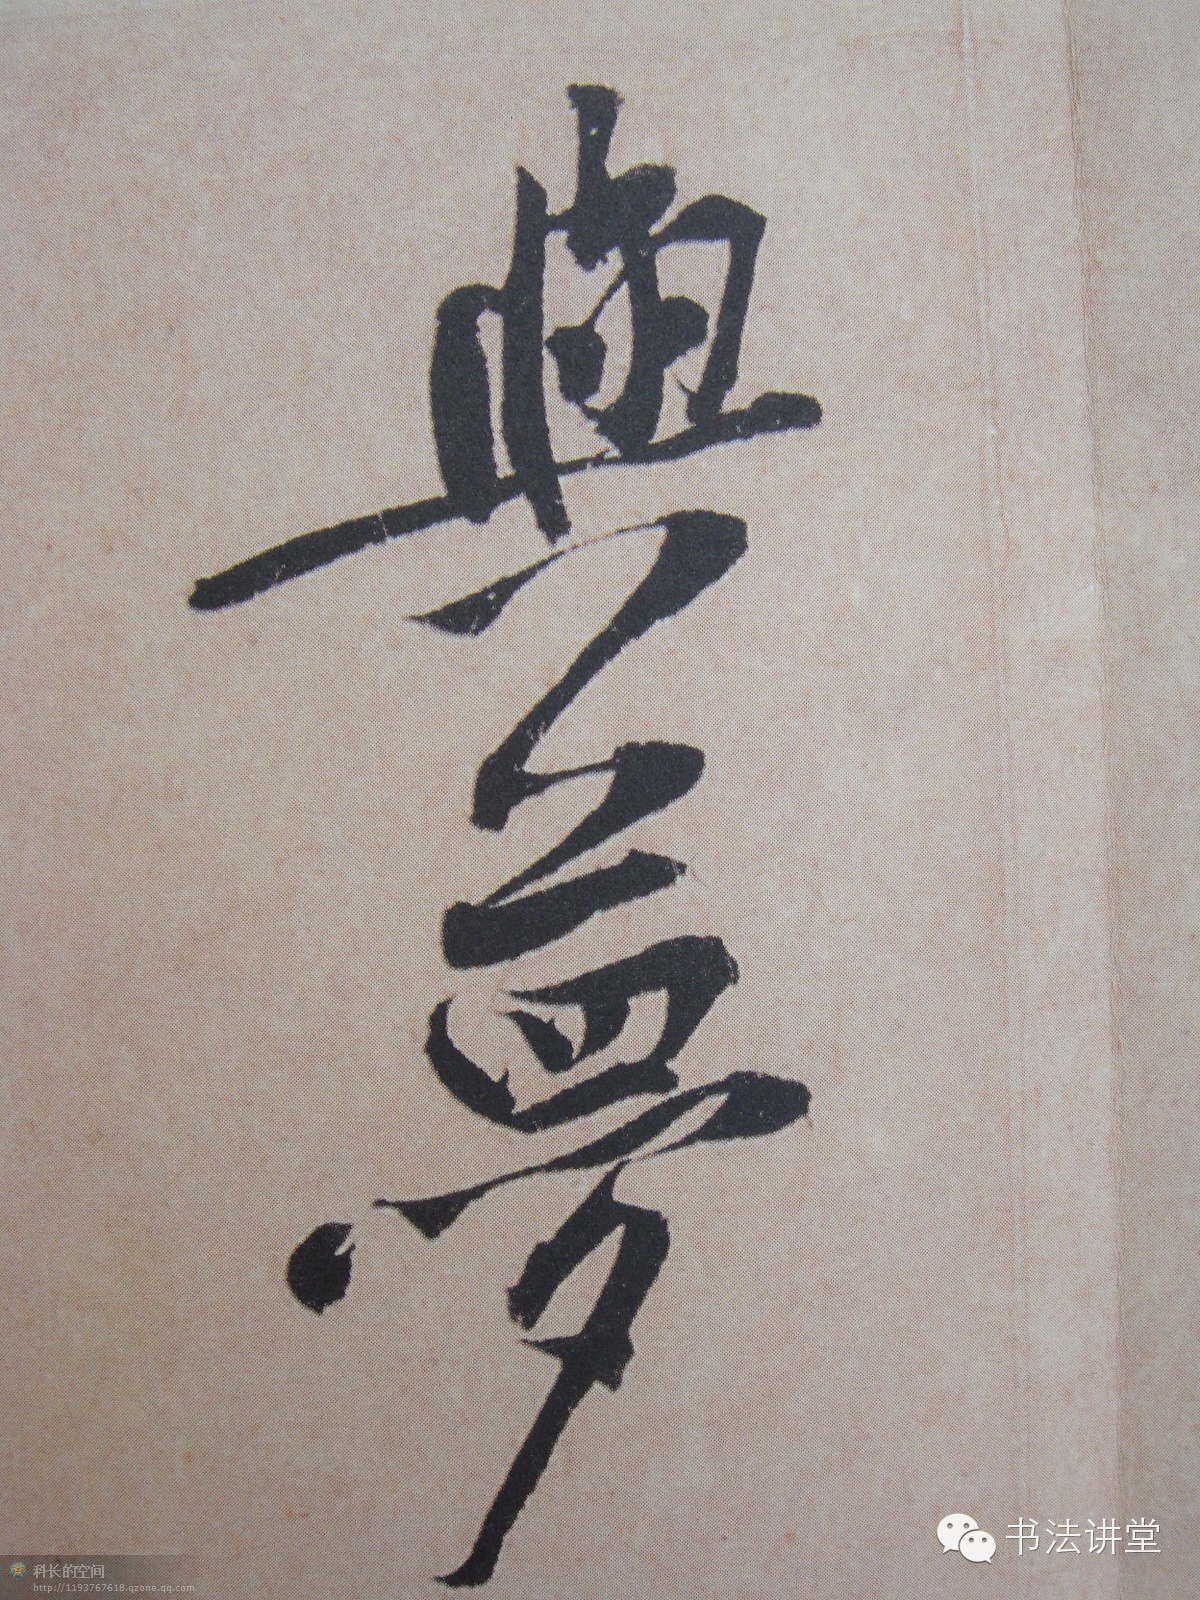 與
夢
书法讲堂
科长的空间
http://1193767618.qzone.qq.com